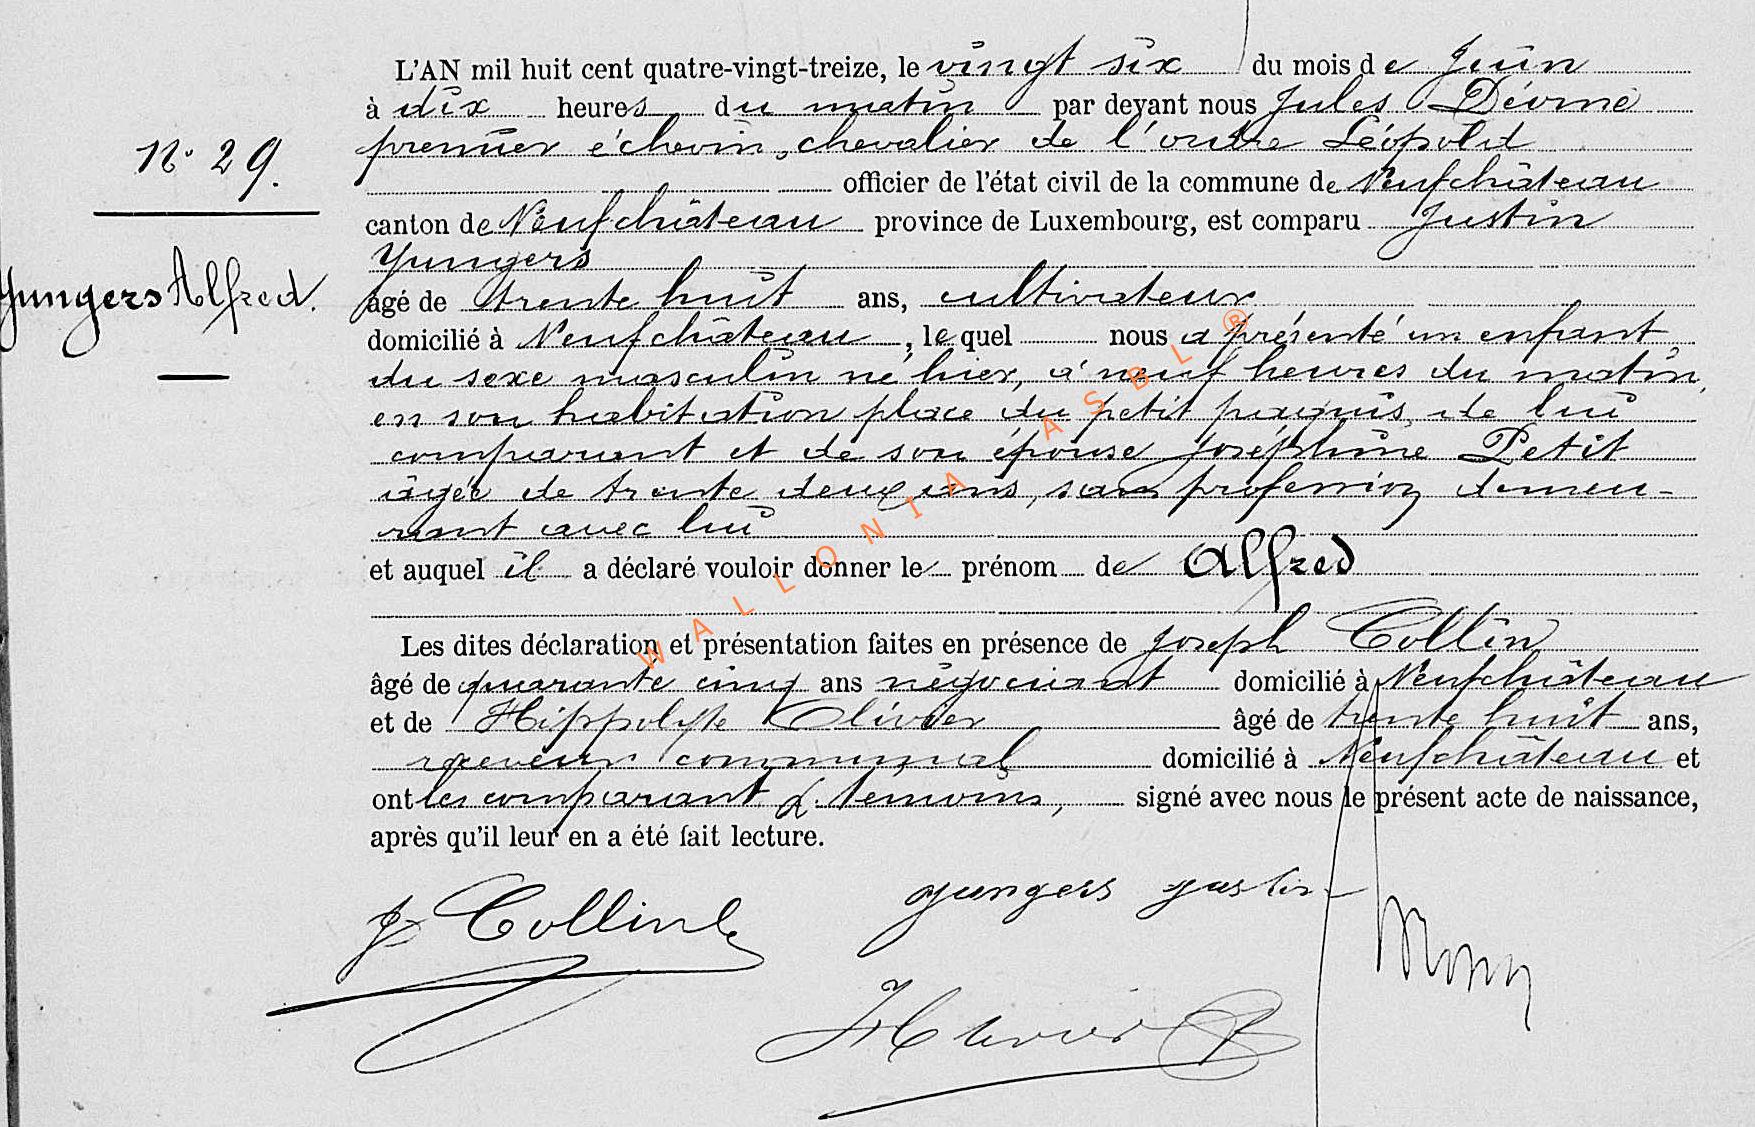 L'AN mil huit cent quatre-vingt-treize, le vingt six du mois de Juin
à dix heures du matin par devant nous Jules
premier échevin, chevalier de l'ordre Léopold
N° 29.
officier de l'état civil de la commune de Neufchâteau
canton de Neufchâteau province de Luxembourg, est comparu Justin
Yungers
Jungers Alfred.
âgé de trente huit ans, cultivateur
domicilié à Neufchâteau, lequel nous a présenté un enfant
du sexe masculin né hier, à neuf heures du matin,
en son habitation place du petit paquis, de lui
comparant et de son épouse Joséphine Petit
âgée de trente deux ans, sans profession demeu-
rant avec lui
et auquel il a déclaré vouloir donner le prénom de Alfred
Les dites déclaration et présentation faites en présence de Joseph Collin
âgé de quarante cinq ans négociant domicilié à Neufchâteau
et de Hippolyte Olivier âgé de trente huit ans,
receveur communal domicilié à Neufchâteau et
ont les comparant & témoins, signé avec nous le présent acte de naissance,
après qu'il leur en a été fait lecture.
J Collin
yungers justin
WALLONIA ASBL ®